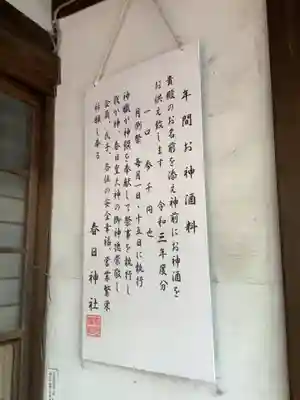 年間お神酒料
貴殿のお名前を添え神前にお神酒を
お供え致します 令和三年度分
一口 参千円也
月例祭 毎月一日・十五日に執行
神職が神饌を奉献して祭事を執行し
我が神 春日皇大神の御神徳崇敬し
会員、氏子、各位の安全幸福、営業繁栄
祈願し奉る
春日神社